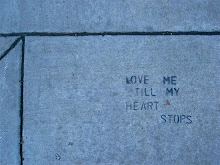 LOVE ME
TILL MY
HEART
STOPS